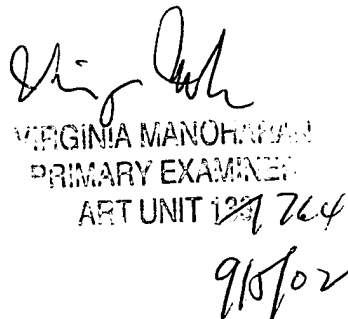 VIRGINIA MANOHARAN
PRIMARY EXAMINER
ART UNIT 1764
9/5/02